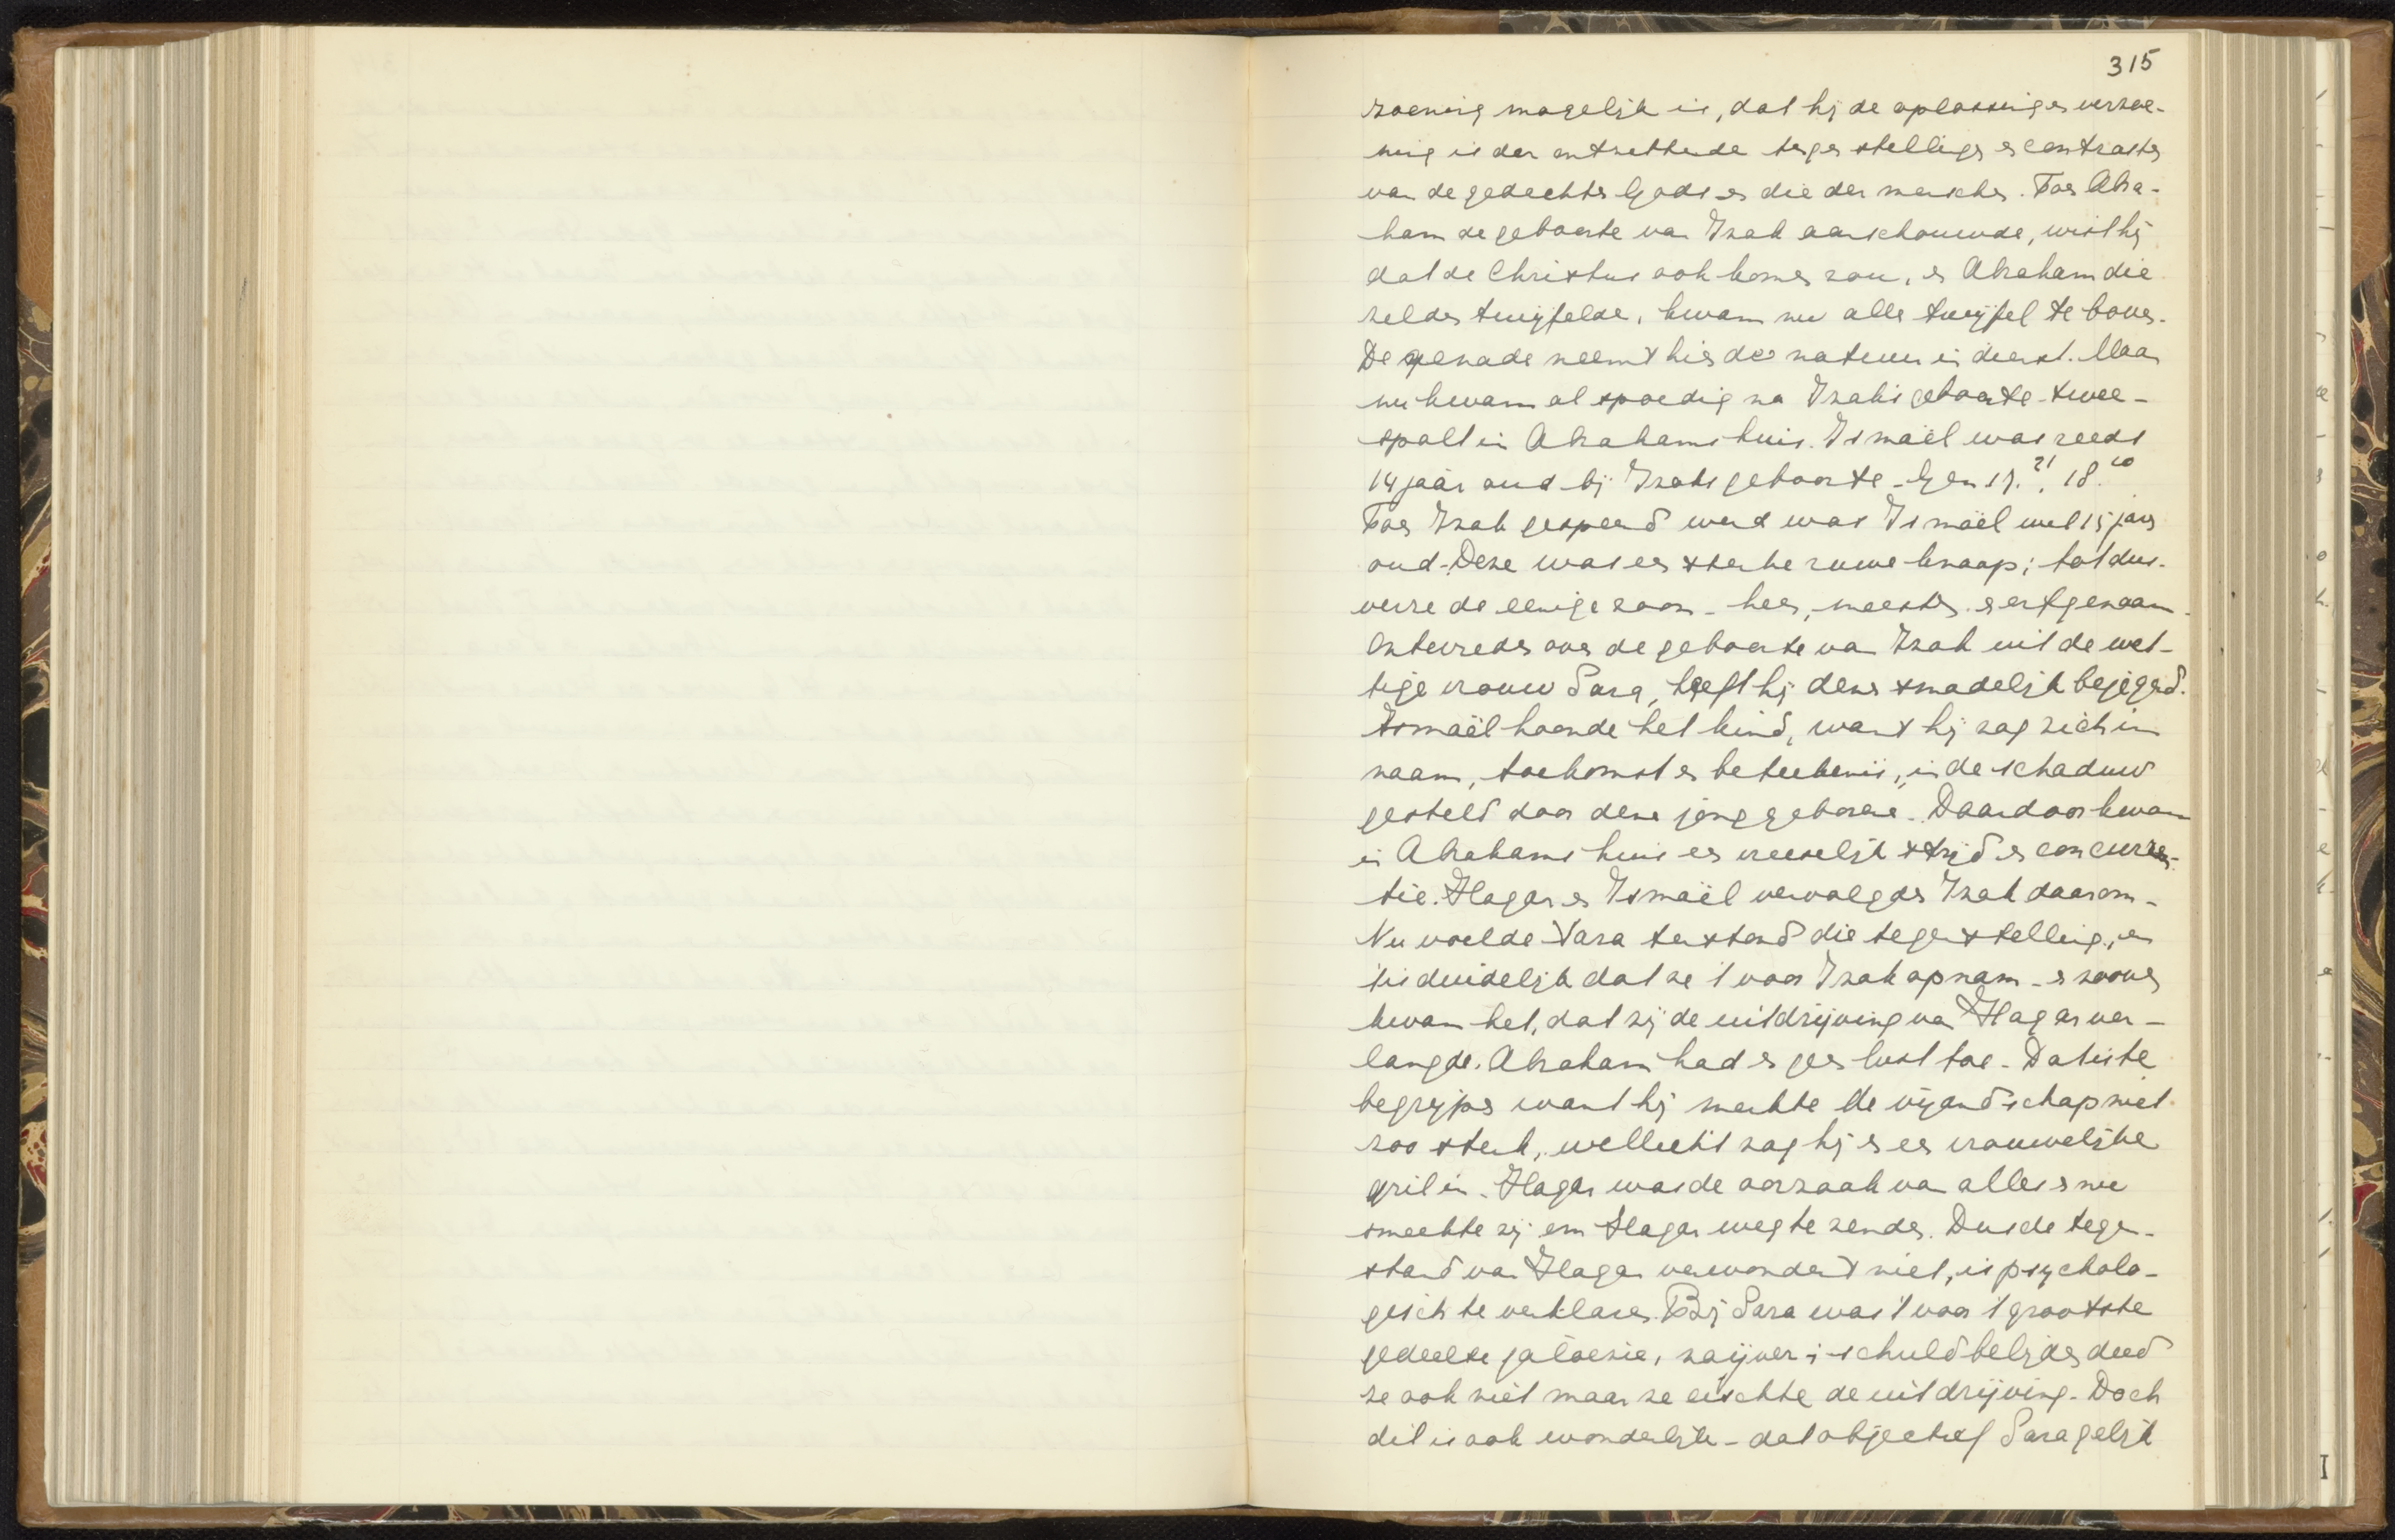 315
zoening mogelijk is, dat hij de oplossing en verzoe-
ning is der ontzettende tegenstellingen en contrasten
van de gedachten Gods en die der menschen. Toen Abra-
ham de geboorte van Izak aanschouwde, wist hij
dat de Christus ook komen zou, en Abraham die
zelden twijfelde, kwam nu alle twijfel te boven.
De genade neemt hier de natuur in dienst. Maar
nu kwam al spoedig na Izaks geboorte twee-
spalt in Abrahams huis. Ismaël was reeds
14 jaar oud bij Izaks geboorte - Gen 17.21, 18.10
Toen Izak gespeend werd was Ismaël wel 15 jaar
oud. Deze was een sterke ruwe knaap; tot dus-
verre de eenige zoon - heer, meester en erfgenaam.
Ontevreden over de geboorte van Izak uit de wet-
tige vrouw Sara, heeft hij deze smadelijk bejegend.
Ismaël hoonde het kind, want hij zag zich in
naam, toekomst en beteekenis, in de schaduw
gesteld door deze jonggeborene. Daardoor kwam
in Abrahams huis een vreeselijk strijd en concurren-
tie. Hagar en Ismaël vervolgden Izak daarom -
Nu voelde Sara terstond die tegenstelling, en
't is duidelijk dat ze 't voor Izak opnam - en zoover
kwam het, dat zij de uitdrijving van Hagar ver-
langde. Abraham had er geen lust toe - Dat is te
begrijpen want hij merkte de vijandschap niet
zoo sterk, wellicht zag hij er een vrouwelijke
gril in. Hagar was de oorzaak van alles en nu
smeekte zij om Hagar weg te zenden. Dus de tegen-
stand van Hagar verwondert niet, is psycholo-
gisch te verklaren. Bij Sara was 't voor 't grootste
gedeelte jaloezie, naijver; schuld belijden deed
ze ook niet maar ze eischte de uitdrijving - Doch
dit is ook wonderlijk - dat objectief Sara gelijk